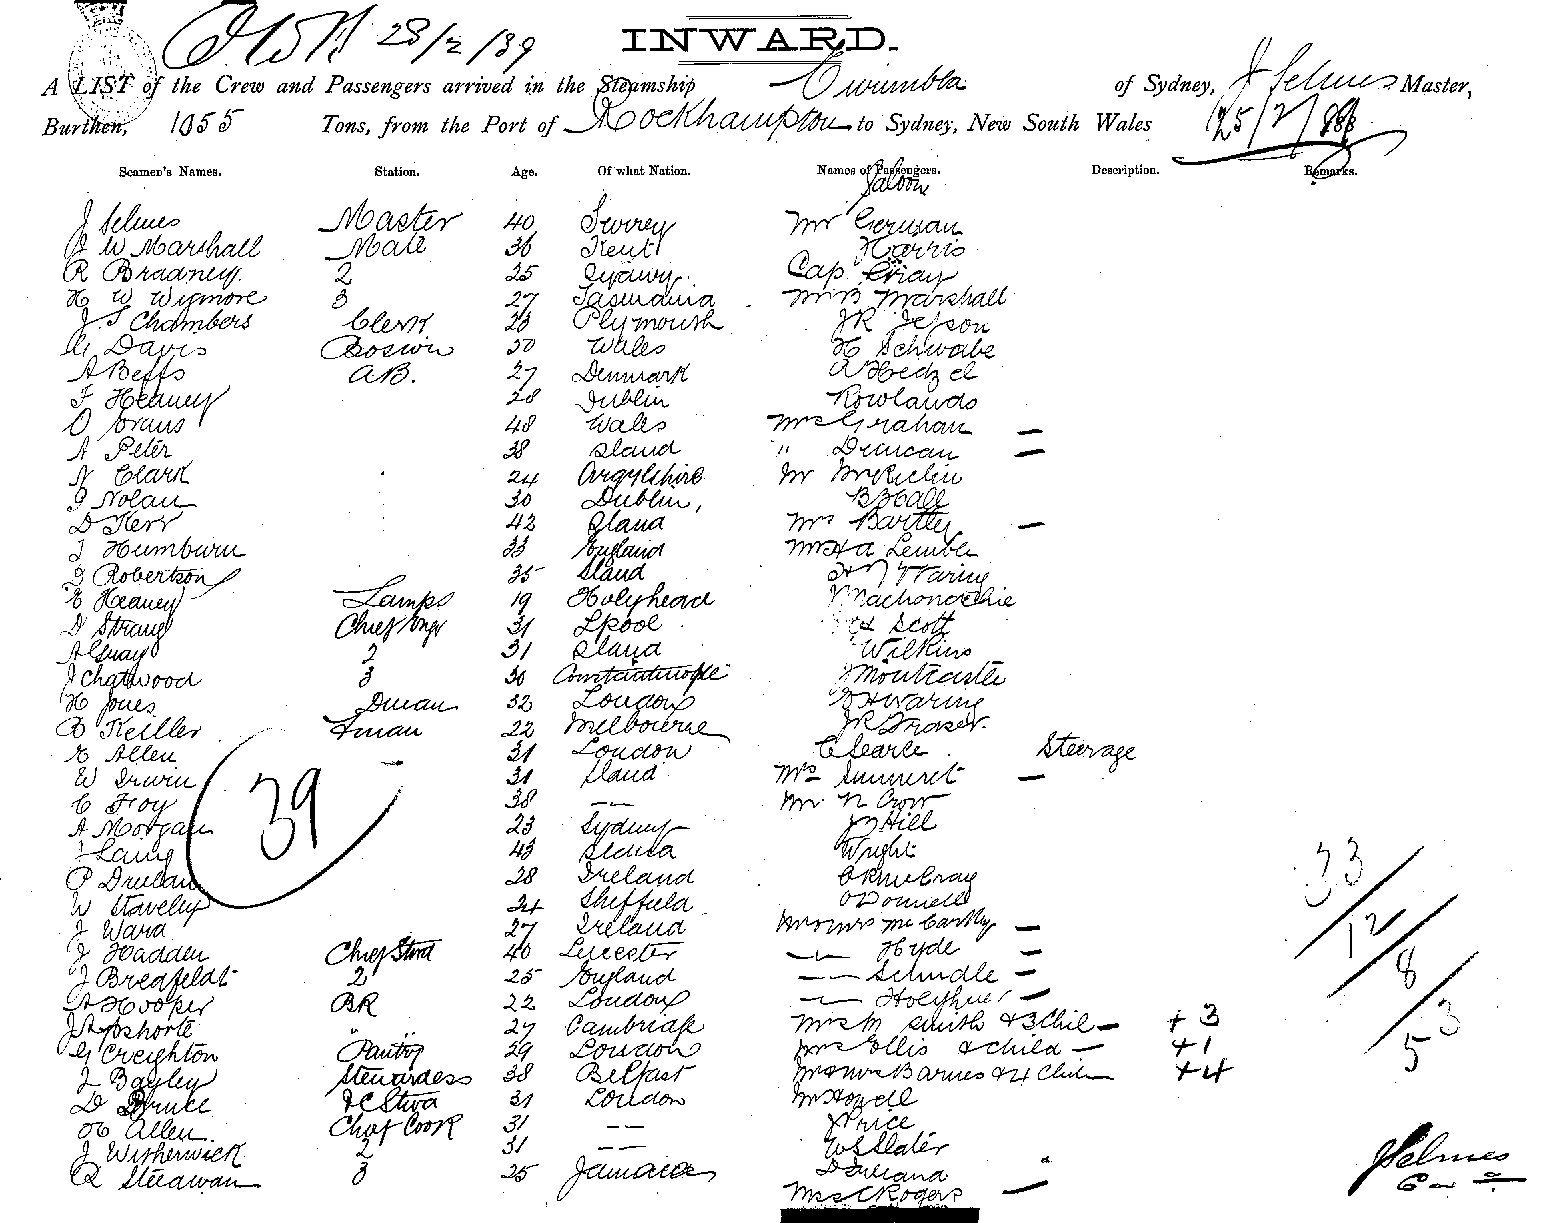 28/2/39
INWARD.
A LIST of the Crew and Passengers arrived in the Steamship Corumbla of Sydney, J Selmes Master,
Burthen, 1055 Tons, from the Port of Rockhampton to Sydney, New South Wales 25/2/88
Seamen's Names. Station. Age. Of what Nation. Names of Passengers. Description. Remarks.
Saloon
J Selmes Master 40 Surrey Mr German
J W Marshall Mate 36 Kent Harris
R Bradney 2 25 Sydney Cap Gray
H W Wigmore 3 27 Tasmania Mr B Marshall
J S Chambers Clerk 23 Plymouth JR Jefson
G Davis Bosun 50 Wales H Schwabe
A Beffs AB. 27 Denmark A Hedzel
F Heaney 28 Dublin Rowlands
O Evans 48 Wales Mrs Graham —
A Peter 38 Sland " Duncan —
N Clark 24 Argylshire Mr
J Nolan 30 Dublin, B Hall
D Kerr 42 Sland Mrs Bartley —
J Humburn 33 England Mr H A
J Robertson 35 Sland Waring
E Heaney Lamps 19 Holyhead Machonochie
D Strang Chief Engr 31 Lpool Scott
A Gray 2 31 Sland Wilkins
J Chatwood 3 30 Constantinople J Montcastle
H Jones Dman 32 London G H Waring
B Keiller Fman 22 Melbourne JR Fraser.
E Allen 31 London C Searle Steerage
W Irwin 31 Sland Mrs —
C Foy 38 — — Mr N Crow
A Morgan 23 Sydney J Hill
39
J Laing 43 Sldna Wright
P Druhan 28 Ireland
W Staveley 24 Sheffield O'Donnell
J Ward 27 Ireland Mr & Mrs McCarthy —
J Hadden Chief Stwd 40 Leicester — Hyde —
J Bredfeldt 2 25 England — — Schudle —
A Hooper BR 22 London —
J Apshorte " 27 Cambridge Mrs M Smith & 3 Chil — + 3
G Creighton Pantry 29 London Mrs Ellis & child — + 1
J Bayley Stewardess 38 Belfast Mr & Mrs Barnes & 4 Chil — + 4
D Bruce 31 London Mr Howell
H Allen Chief Cook 31 — — J Price
J Witherwick 2 31 — — W S Slater
R 3 25 Jamaica
Mrs C Rogers —
33
12
8
3
5
J Selmes